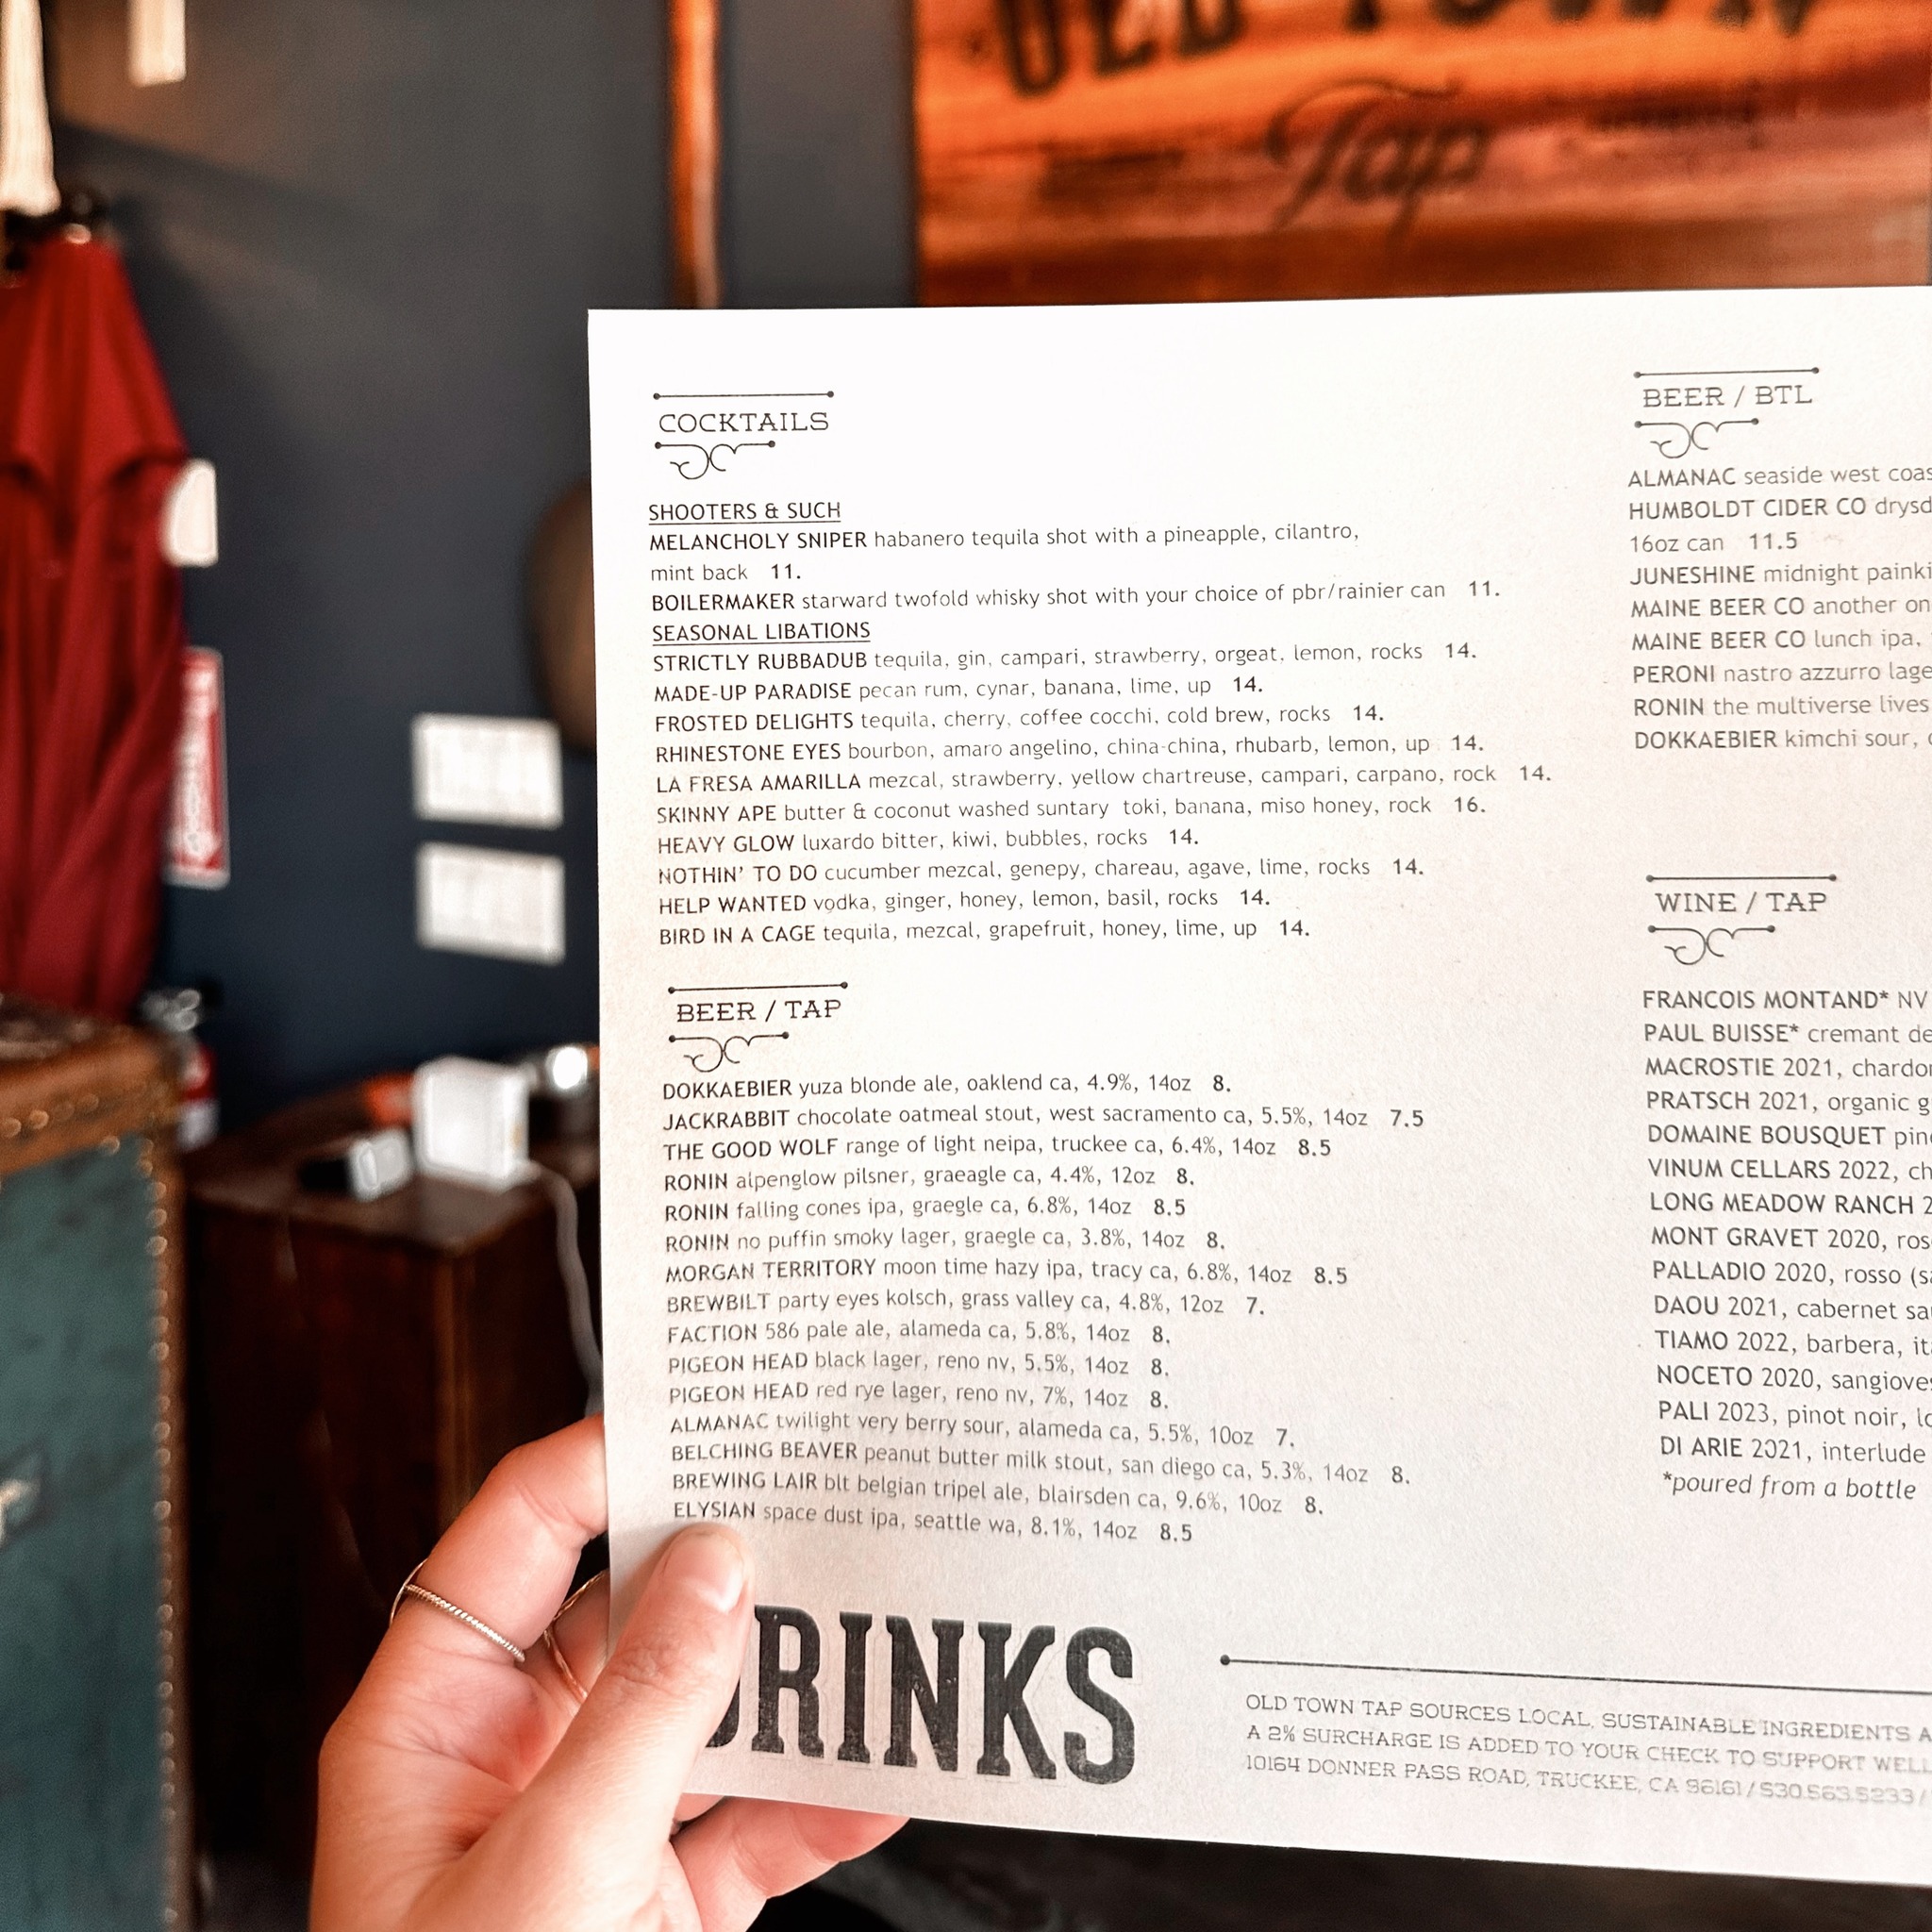 OLD TOWN
Tap
COCKTAILS
SHOOTERS & SUCH
MELANCHOLY SNIPER habanero tequila shot with a pineapple, cilantro,
mint back 11.
BOILERMAKER starward twofold whisky shot with your choice of pbr/rainier can 11.
SEASONAL LIBATIONS
STRICTLY RUBBADUB tequila, gin, campari, strawberry, orgeat, lemon, rocks 14.
MADE-UP PARADISE pecan rum, cynar, banana, lime, up 14.
FROSTED DELIGHTS tequila, cherry, coffee cocchi, cold brew, rocks 14.
RHINESTONE EYES bourbon, amaro angelino, china-china, rhubarb, lemon, up 14.
LA FRESA AMARILLA mezcal, strawberry, yellow chartreuse, campari, carpano, rock 14.
SKINNY APE butter & coconut washed suntary toki, banana, miso honey, rock 16.
HEAVY GLOW luxardo bitter, kiwi, bubbles, rocks 14.
NOTHIN' TO DO cucumber mezcal, genepy, chareau, agave, lime, rocks 14.
HELP WANTED vodka, ginger, honey, lemon, basil, rocks 14.
BIRD IN A CAGE tequila, mezcal, grapefruit, honey, lime, up 14.
BEER / TAP
DOKKAEBIER yuza blonde ale, oaklend ca, 4.9%, 14oz 8.
JACKRABBIT chocolate oatmeal stout, west sacramento ca, 5.5%, 14oz 7.5
THE GOOD WOLF range of light neipa, truckee ca, 6.4%, 14oz 8.5
RONIN alpenglow pilsner, graeagle ca, 4.4%, 12oz 8.
RONIN falling cones ipa, graegle ca, 6.8%, 14oz 8.5
RONIN no puffin smoky lager, graegle ca, 3.8%, 14oz 8.
MORGAN TERRITORY moon time hazy ipa, tracy ca, 6.8%, 14oz 8.5
BREWBILT party eyes kolsch, grass valley ca, 4.8%, 12oz 7.
FACTION 586 pale ale, alameda ca, 5.8%, 14oz 8.
PIGEON HEAD black lager, reno nv, 5.5%, 14oz 8.
PIGEON HEAD red rye lager, reno nv, 7%, 14oz 8.
ALMANAC twilight very berry sour, alameda ca, 5.5%, 10oz 7.
BELCHING BEAVER peanut butter milk stout, san diego ca, 5.3%, 14oz 8.
BREWING LAIR blt belgian tripel ale, blairsden ca, 9.6%, 10oz 8.
ELYSIAN space dust ipa, seattle wa, 8.1%, 14oz 8.5
BEER / BTL
ALMANAC seaside west coas
HUMBOLDT CIDER CO drysd
16oz can 11.5
JUNESHINE midnight painki
MAINE BEER CO another on
MAINE BEER CO lunch ipa,
PERONI nastro azzurro lage
RONIN the multiverse lives
DOKKAEBIER kimchi sour,
WINE / TAP
FRANCOIS MONTAND* NV
PAUL BUISSE* cremant de
MACROSTIE 2021, chardon
PRATSCH 2021, organic g
DOMAINE BOUSQUET pino
VINUM CELLARS 2022, ch
LONG MEADOW RANCH 2
MONT GRAVET 2020, ros
PALLADIO 2020, rosso (sa
DAOU 2021, cabernet sau
TIAMO 2022, barbera, it
NOCETO 2020, sangioves
PALI 2023, pinot noir, lo
DI ARIE 2021, interlude
*poured from a bottle
DRINKS
OLD TOWN TAP SOURCES LOCAL, SUSTAINABLE INGREDIENTS A
A 2% SURCHARGE IS ADDED TO YOUR CHECK TO SUPPORT WELL
10164 DONNER PASS ROAD, TRUCKEE, CA 96161 / 530.563.5233 /